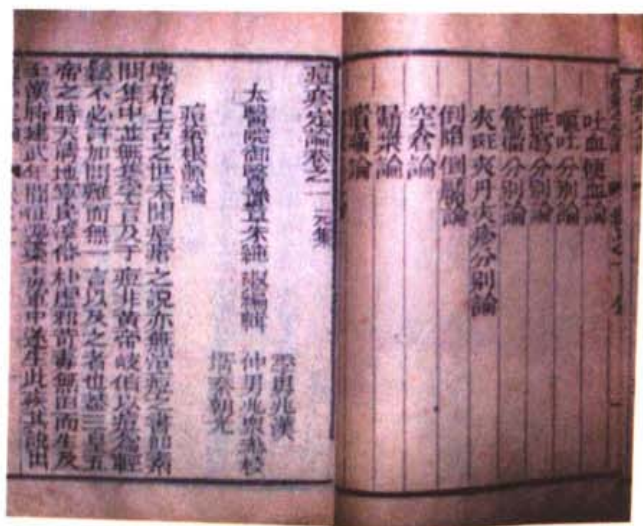 吐血便血論
嘔吐分別論
泄瀉分別論
驚搐分別論
夾斑夾丹夾疹分別論
倒陷倒靨論
空倉論
論
論
痘疹定論卷之一 元集
太醫院御醫豫章朱純嘏編輯
季男兆漢
仲男兆 校
壻 朝
痘瘡根源論
稽上古之世未聞痘瘡之說亦無治痘之書即素
問集中並無 言及于痘非黃帝岐伯以痘為輕
鬆不必詳加問難而無一言以及之者也蓋三皇五
帝之時天清地寧民淳俗朴虛邪苛毒無自而生及
至漢時建武年間征 軍中遂生此疾其說出